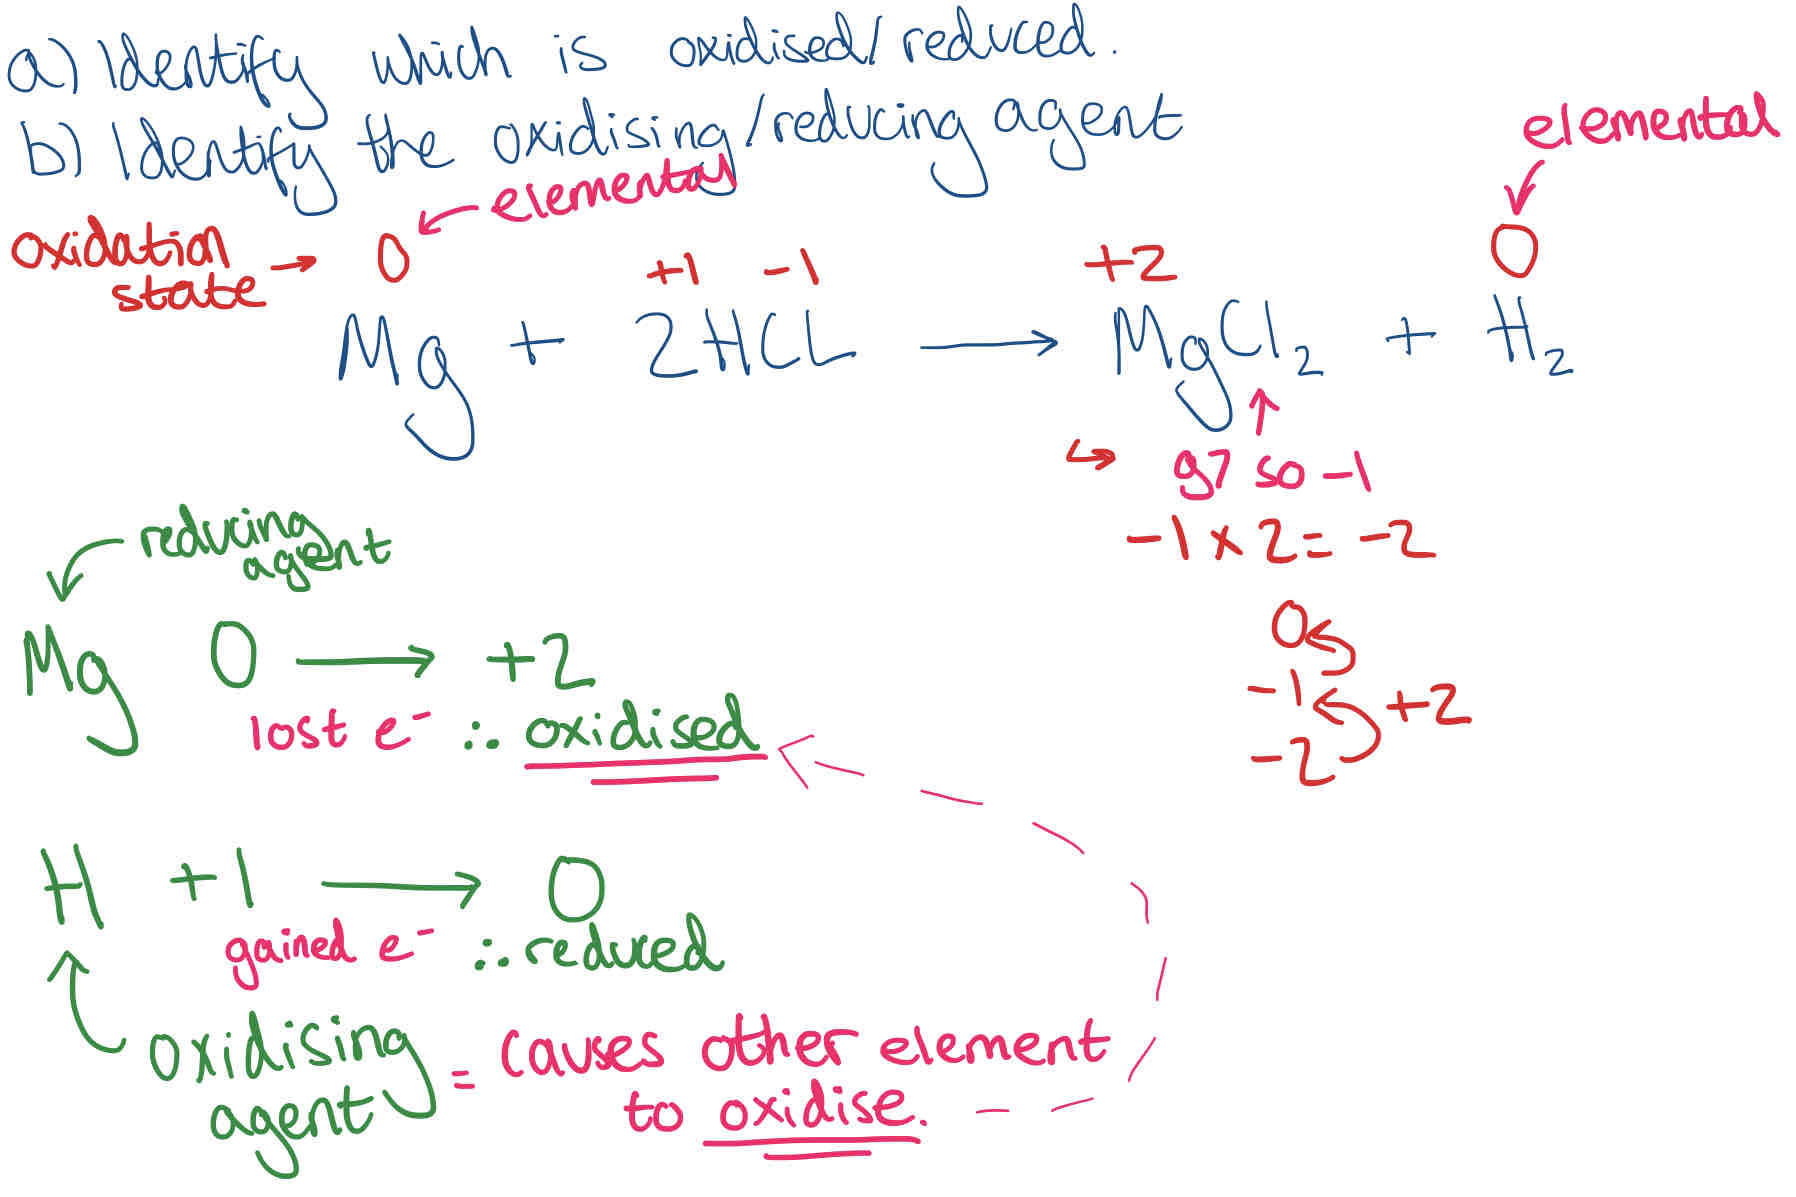 a) Identify which is oxidised/reduced.
b) Identify the oxidising/reducing agent
elemental
elemental
oxidation state → 0
+1 -1
+2
0
Mg + 2HCl → MgCl₂ + H₂
↪ g7 so -1
-1 x 2 = -2
0
-1
+2
-2
reducing agent
Mg 0 → +2
lost e⁻ ∴ oxidised
H +1 → 0
gained e⁻ ∴ reduced
oxidising agent = causes other element
to oxidise.